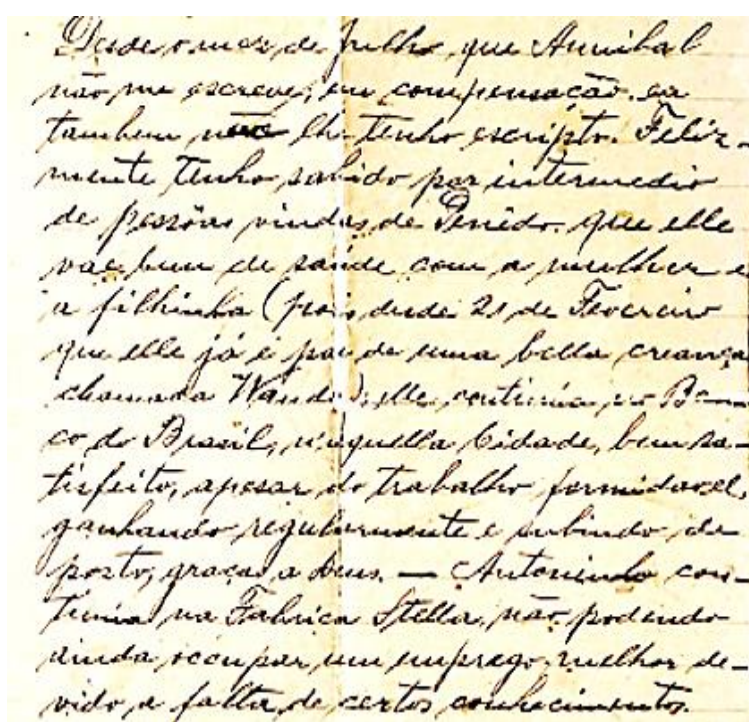 Desde o mez de Julho que Annibal
não me escreve; em compensação eu
tambem não lhe tenho escripto. Feliz-
mente tenho sabido por intermedio
de pessôas vindas de Penêdo que elle
vae bem de saúde com a mulher e
a filhinha (pois desde 21 de Fevereiro
que elle já é pae de uma bella creança
chamada Wanda); elle continúa no Ban-
co do Brasil, n'aquella Cidade, bem sa-
tisfeito, apesar do trabalho formidavel,
ganhando regularmente e subindo de
posto, graças a Deus. — Antonindo con-
tinúa na Fabrica Stella, não podendo
ainda occupar um emprego melhor de-
vido a falta de certos conhecimentos.